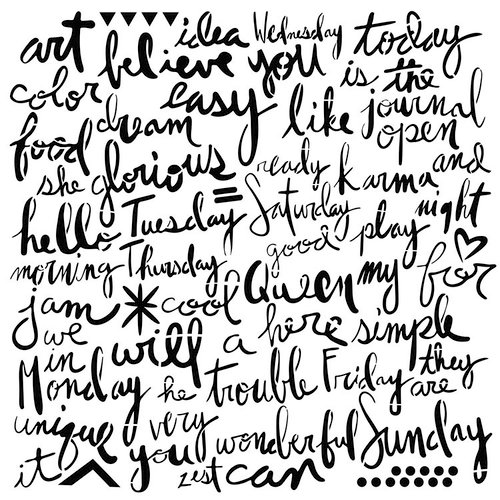 art idea Wednesday today
believe you is the
color easy like journal
food dream open
she glorious ready karma and
hello Tuesday Saturday play night
morning Thursday good
jam cool Queen my for
we will a here simple
in
Monday he trouble Friday they are
unique very wonderful Sunday
it you zest can